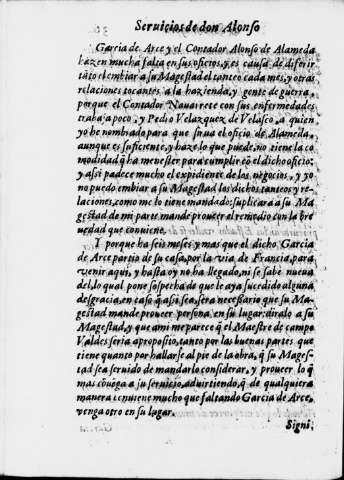 Seruicios de don Alonso
Garcia de Arce y el Contador Alonso de Alameda
hazen mucha falta en sus oficios, y es causa de diferir
tãto el embiar a su Magestad el tanteo cada mes, y otras
relaciones tocantes a la hazienda, y gente de guerra,
porque el Contador Nauarrete con sus enfermedades
trabaja poco, y Pedro Velazquez de Velasco, a quien
yo he nombrado para que sirua el oficio de Alameda,
aunque es suficiente, y haze lo que puede, no tiene la co
modidad q̃ ha menester para cumplir cõ el dicho oficio:
y assi padece mucho el expidiente de los negocios, y yo
no puedo embiar a su Magestad los dichos tanteos y re-
laciones, como me lo tiene mandado: suplicarà a su Ma
gestad de mi parte mande proueer al remedio con la bre
uedad que conuiene.
Y porque ha seis meses y mas que el dicho Garcia
de Arce partio de su casa, por la via de Francia, para
venir aqui, y hasta oy no ha llegado, ni se sabe nueua
del, lo qual pone sospecha de que le aya sucedido alguna
desgracia, en caso q̃ assi sea, serà necessario que su Ma-
gestad mande proueer persona, en su lugar: diralo a su
Magestad, y que a mi me parece q̃ el Maestre de campo
Valdes seria a proposito, tanto por las buenas partes que
tiene quanto por hallarse al pie de la obra, q̃ su Mages-
tad sea seruido de mandarlo considerar, y proueer lo q̃
mas cõuẽga a su seruicio, aduirtiendo, q̃ de qualquiera
manera conuiene mucho que faltando Garcia de Arce,
venga otro en su lugar.
Signi.